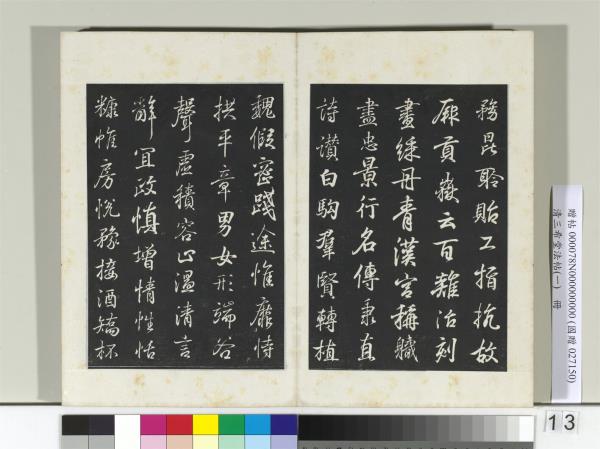 務昆聆貽工指抗故
厥貢嶽云百雜治刻
畫綵丹青漢宮稱職
盡忠景行名傳秉直
詩讚白駒羣賢轉植
魏假密踐途惟靡恃
拱平章男女形端谷
聲虛積容止溫清言
辭宜政慎增情性恬
糠帷房悅豫接酒矯杯
贈帖 000078N000000000 (國贈 027150)
清三希堂法帖(一) 冊
13